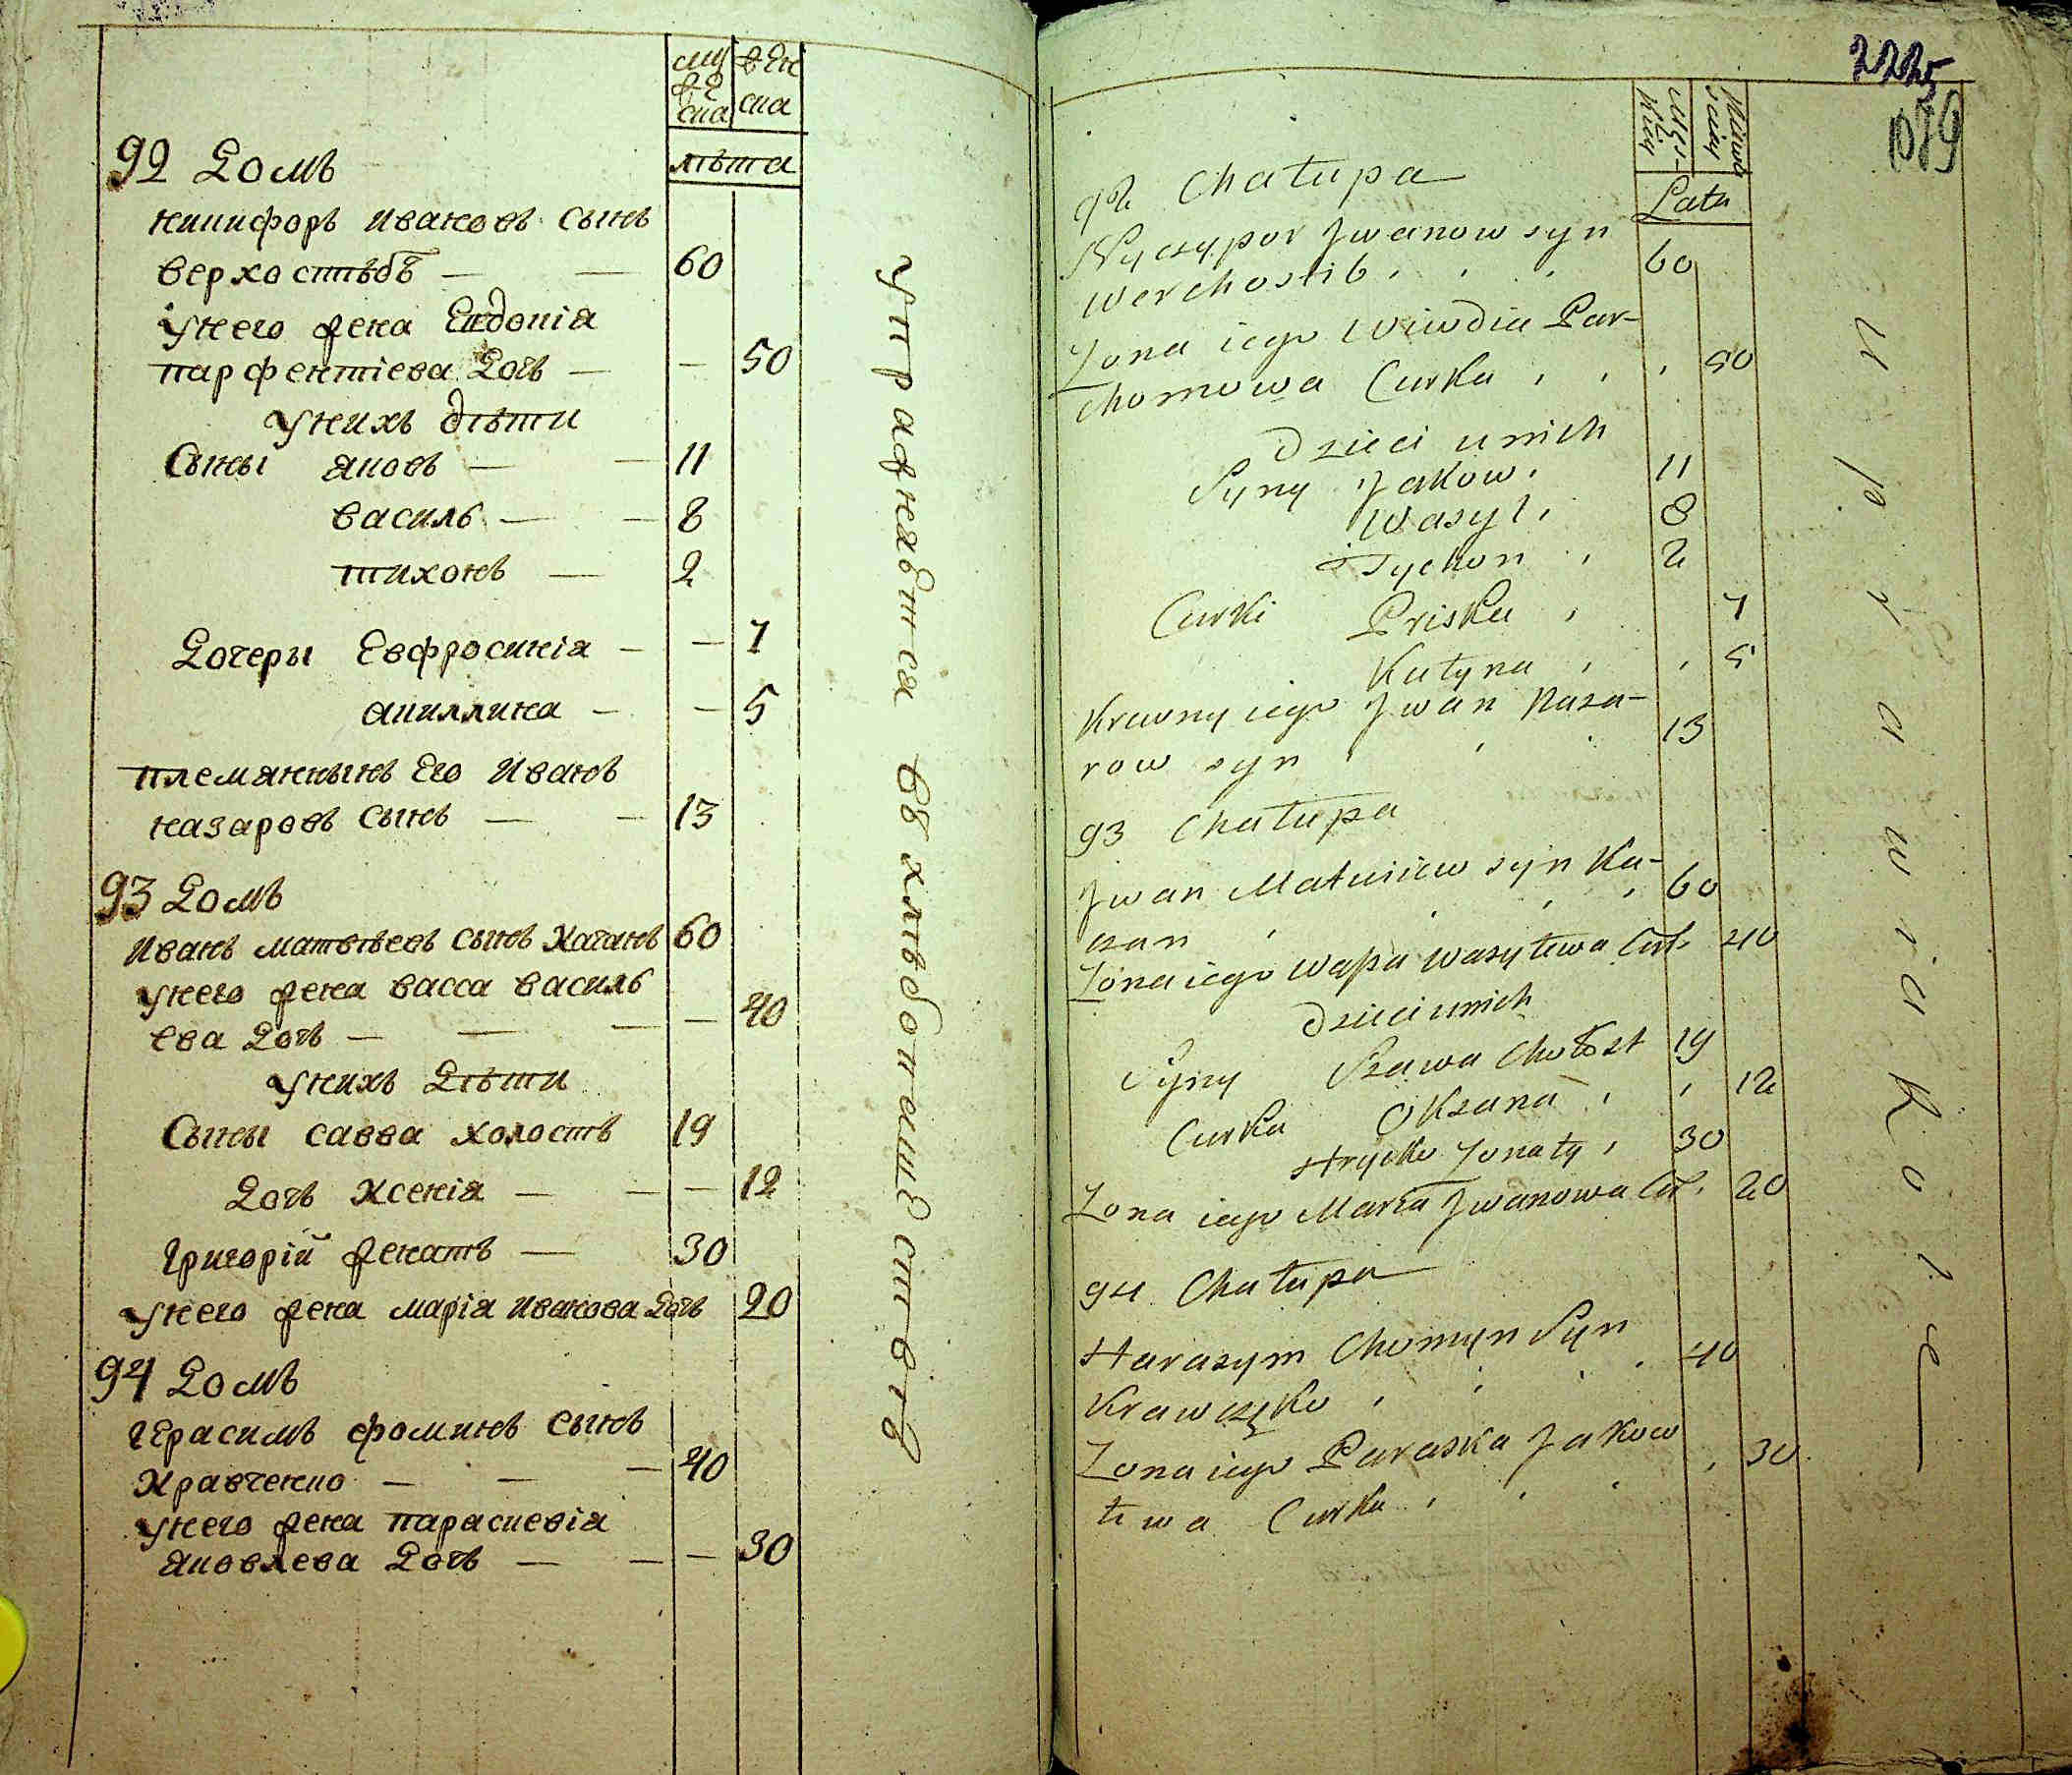 муже
ска
женска
лѣта
92 Домъ
никифоръ ивановъ сынъ
верхостѣбъ — — 60
унего жена Евдокія
парфентіева Дочь — — 50
Унихъ дѣти
Сыны яковъ — — 11
василь — — 8
тихонъ — 2
Дочеры Евфросинія — — 7
акиллина — — 5
племянныкъ Его Иванъ
назаровъ Сынъ — — 13
93 Домъ
Иванъ матвѣевъ сынъ Качанъ 60
унего жена васса василь
ева Дочь — — — — 40
Унихъ Дѣти
Сыны савва холостъ 19
Дочь Ксенія — — — 12
Григорій женатъ — 30
Унего жена марія Иванова Дочь 20
94 Домъ
Герасимъ фоминъ сынъ
Кравченко — — — 40
Унего жена параскевія
яковлева Дочь — — — 30
упражняются въ хлѣбопашествѣ
2225
1089
Męs-
kiey
Lata
92 Chałupa
Nyczypor Jwanow syn
Werchostib 60
Zona iego Wiwdia Par-
chomowa Curka 50
Dzieci unich
Syny Jakow 11
Wasyl 8
Tychon 2
Curki Priska 7
Kułyna 5
Krewny iego Jwan Naza-
row syn 13
93 Chałupa
Jwan Matwiiew syn Ka-
czan 60
Zona iego Wapa Wasylewa Cur. 40
Dzieci unich
Syny Szawa Chołost 19
Curka Oksana 12
Hrycko Zonaty 30
Zona iego Maria Jwanowa Cur. 20
94 Chałupa
Harasym Chomyn Syn
Krawczęko 40
Zona iego Paraska Jakow
lewa Curka 30
w roli